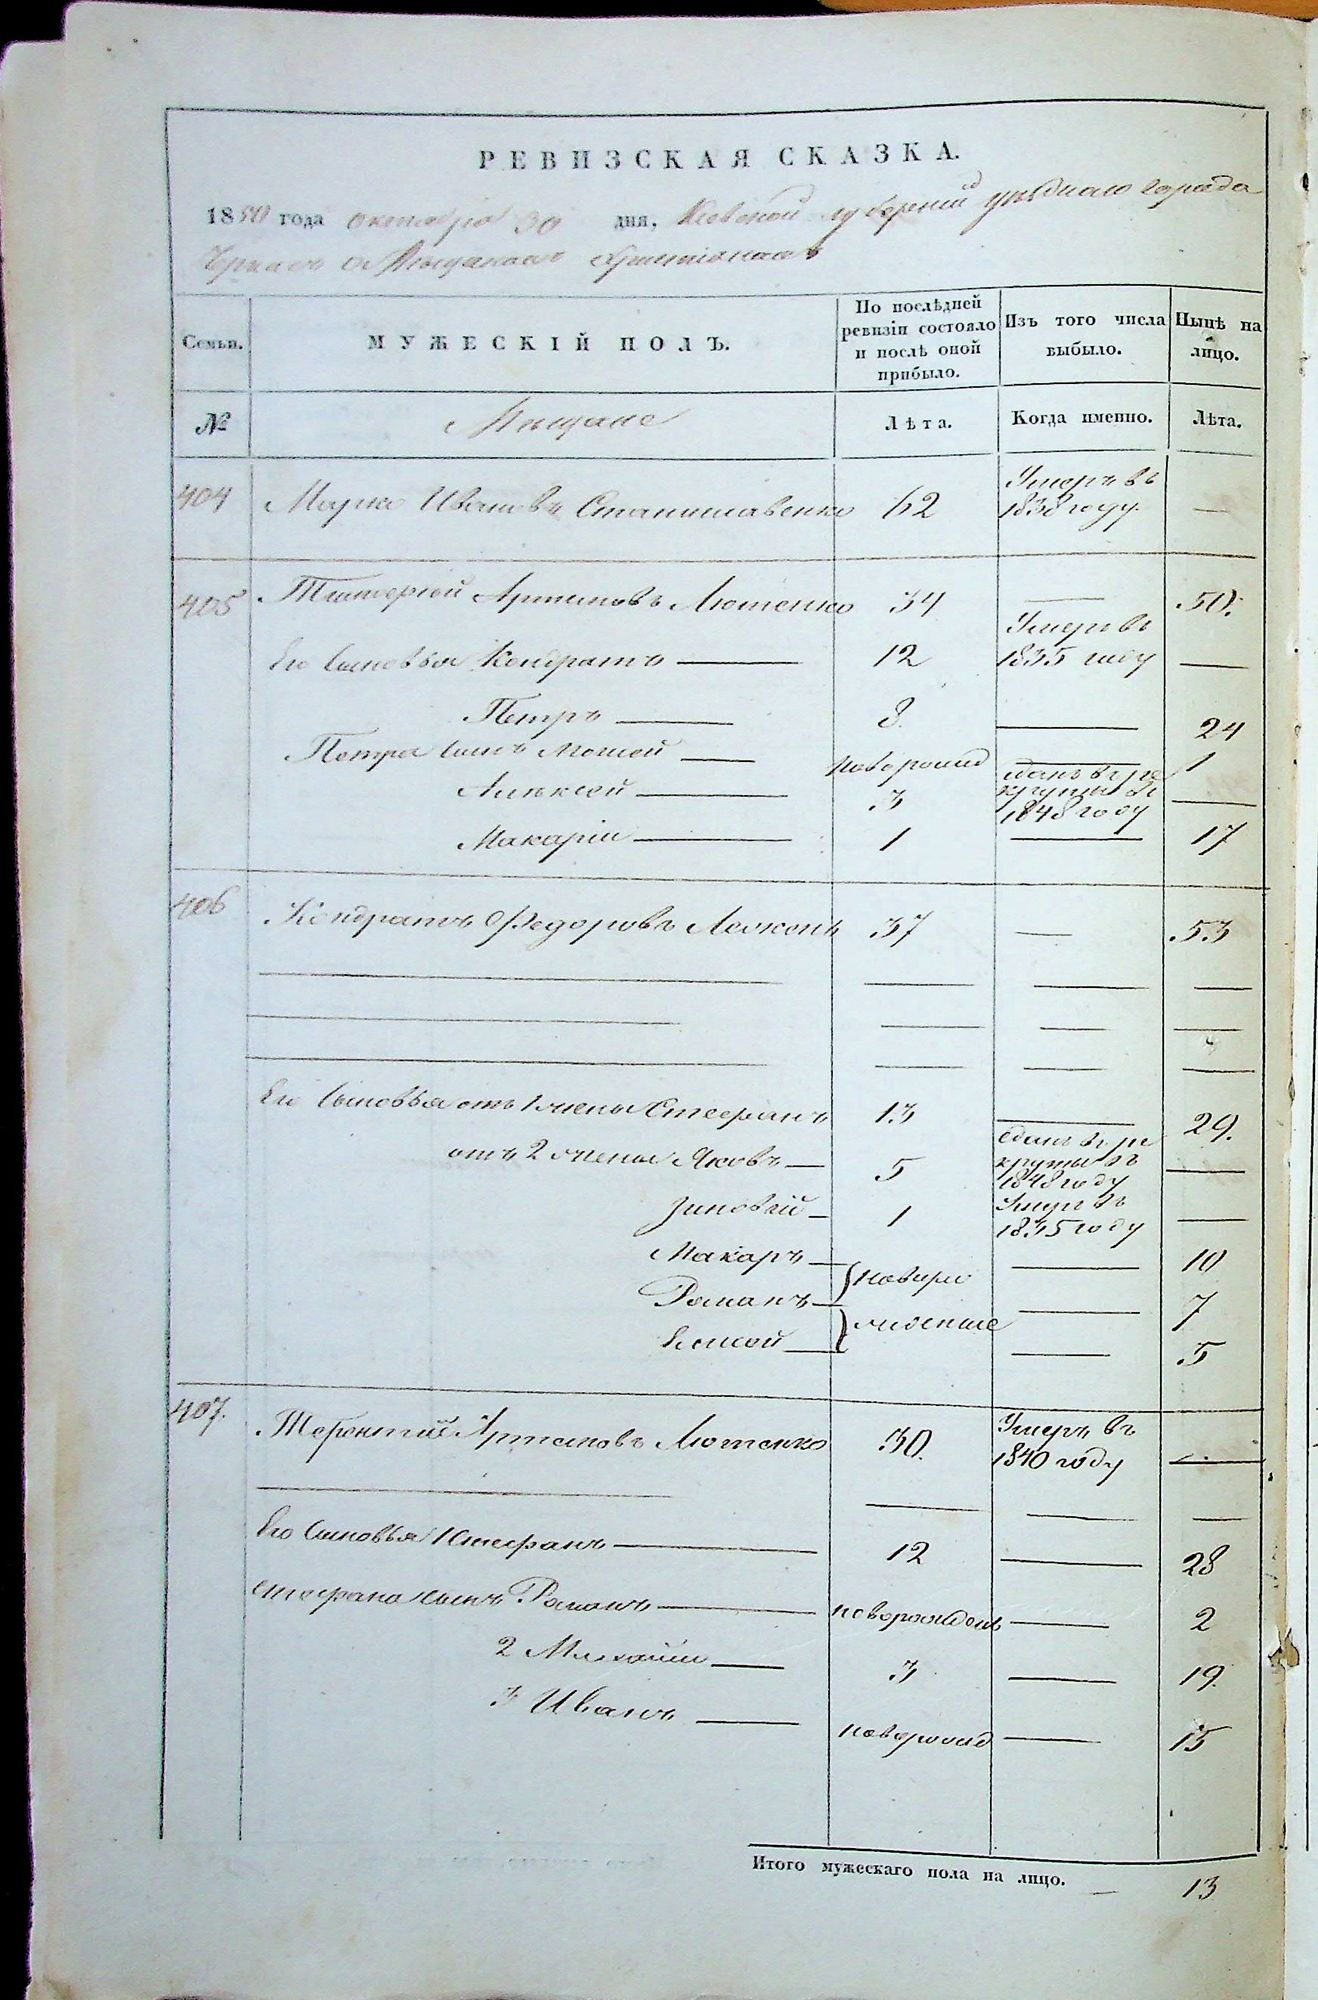 РЕВИЗСКАЯ СКАЗКА.
1850 года октября 30 дня, Кіевской губерніи уѣзднаго города
Черкасъ о Мещанахъ христіанахъ
Семьи. МУЖЕСКІЙ ПОЛЪ. По послѣдней ревизіи состояло и послѣ оной прибыло. Изъ того числа выбыло. Нынѣ на лицо.
№ Мещане Лѣта. Когда именно. Лѣта.
404 Марко Ивановъ Станиславенко 62 Умеръ въ 1838 году —
405 Тимофей Артемовъ Лютенко 34 — 50.
Его сыновья Кондратъ — 12 Умеръ въ 1835 году —
Петръ — 8 — 24
Петра сынъ Мойсей — новорожд — 1
Алексей — 3 сданъ въ рекруты въ 1848 году —
Макарій — 1 — 17
406 Кондратъ Федоровъ 37 — 53
Его сыновья отъ 1 жены Стефанъ 13 — 29.
отъ 2 жены Яковъ — 5 сданъ въ рекруты въ 1848 году —
Зиновій — 1 Умеръ въ 1835 году —
Макаръ — новоро — 10
Романъ — жденные — 7
— 5
407. Терентій Артемовъ Лютенко 30. Умеръ въ 1840 году —
Его сыновья 1 Стефанъ — 12 — 28
Стефана сынъ Романъ — новорожден — 2
2 Михаилъ — 3 — 19
3 Иванъ — новорожд — 15
Итого мужескаго пола на лицо. — 13